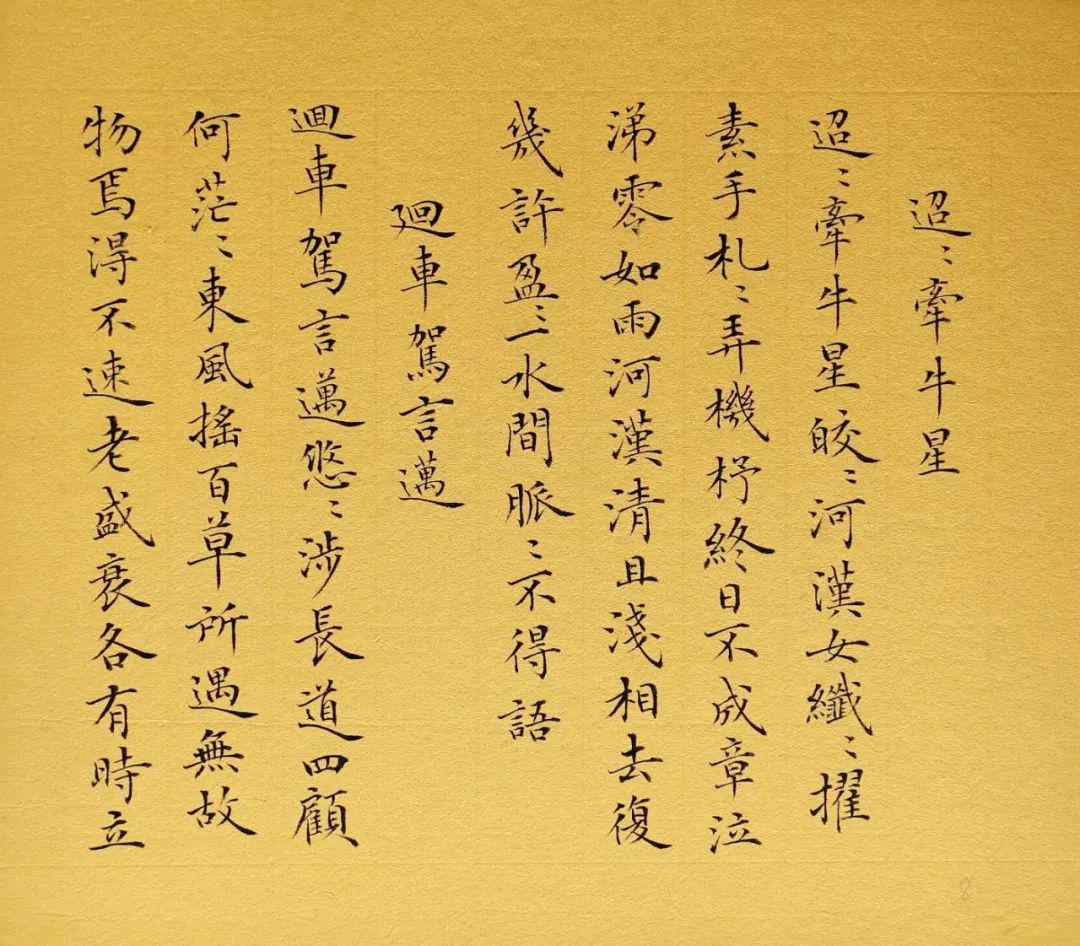 迢〻牽牛星
迢〻牽牛星皎〻河漢女纖〻擢
素手札〻弄機杼終日不成章泣
涕零如雨河漢清且淺相去復
幾許盈〻一水間脈〻不得語
廻車駕言邁
迴車駕言邁悠〻涉長道四顧
何茫〻東風搖百草所遇無故
物焉得不速老盛衰各有時立
8